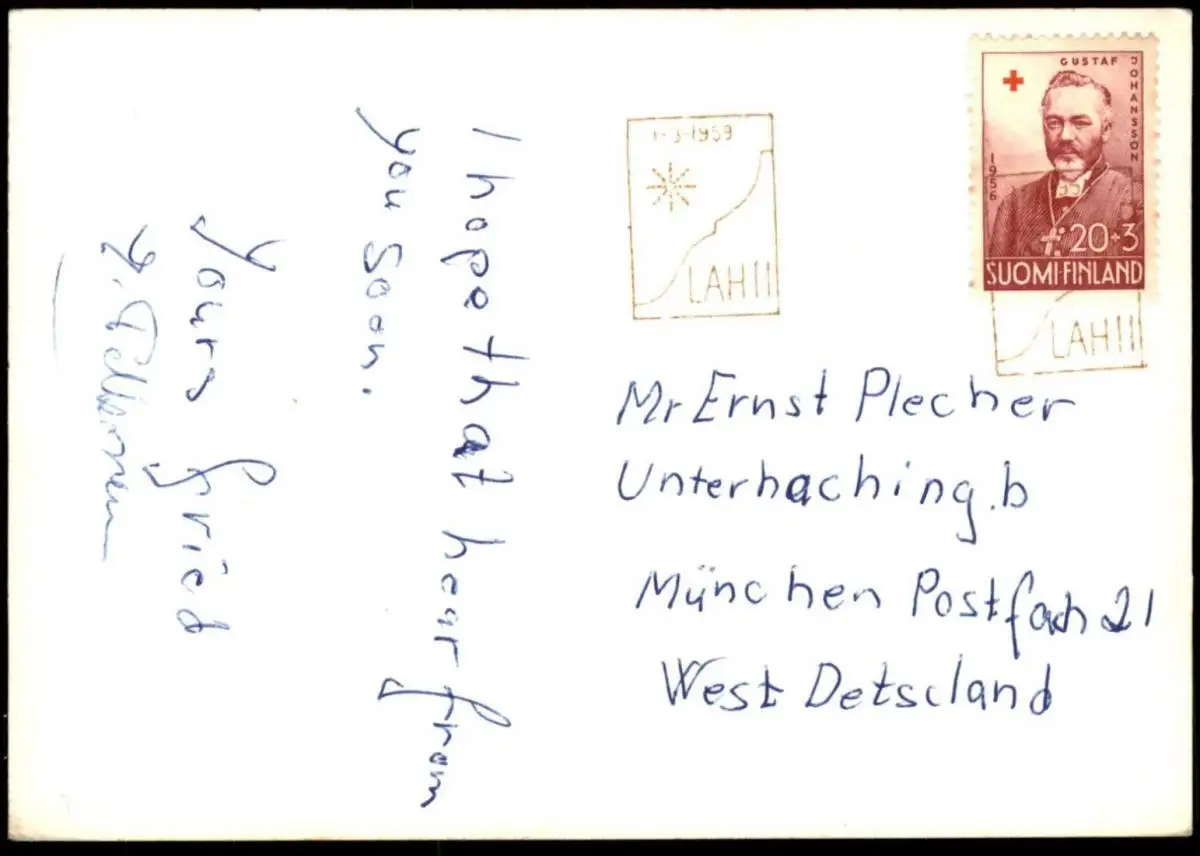 I hope that hear from
you soon.
Yours fried
1-3-1959
LAHTI
GUSTAF JOHANSSON
1956
20+3
SUOMI-FINLAND
LAHTI
Mr Ernst Plecher
Unterhaching.b
München Postfach 21
West Detscland